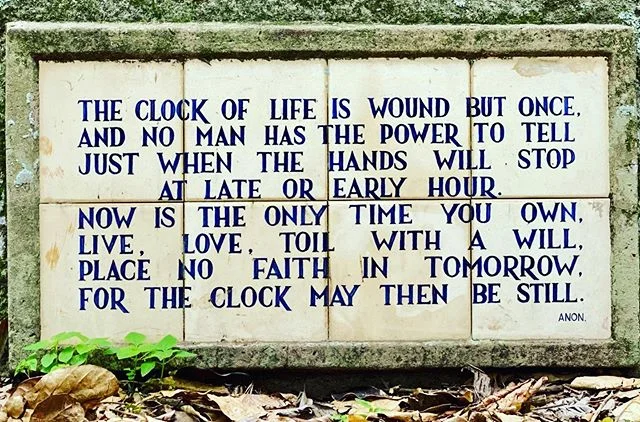 THE CLOCK OF LIFE IS WOUND BUT ONCE,
AND NO MAN HAS THE POWER TO TELL
JUST WHEN THE HANDS WILL STOP
AT LATE OR EARLY HOUR.
NOW IS THE ONLY TIME YOU OWN,
LIVE, LOVE, TOIL WITH A WILL,
PLACE NO FAITH IN TOMORROW,
FOR THE CLOCK MAY THEN BE STILL.
ANON.